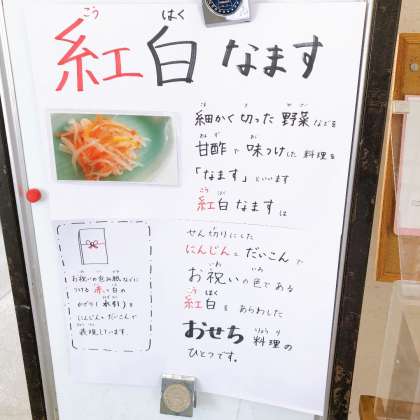 こう はく
紅白なます
細かく切った野菜などを
甘酢で味つけした料理を
「なます」といいます
紅白なますは
せん切りにした
にんじんとだいこんで
お祝いの色である
紅白をあらわした
おせち料理の
ひとつです。
お祝いの包み紙などに
つける赤と白の
かざり(水引)を
にんじんとだいこんで
表現しています。